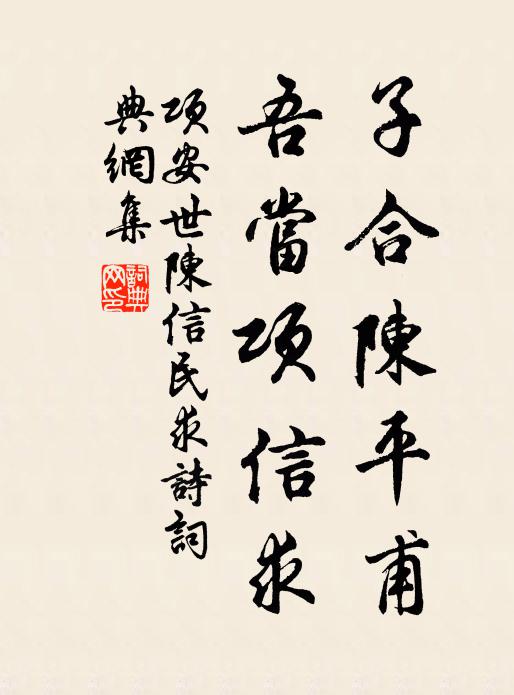 子合陳平甫
吾當項信求
項安世陳信民求詩詞
典網集
詞典
网印